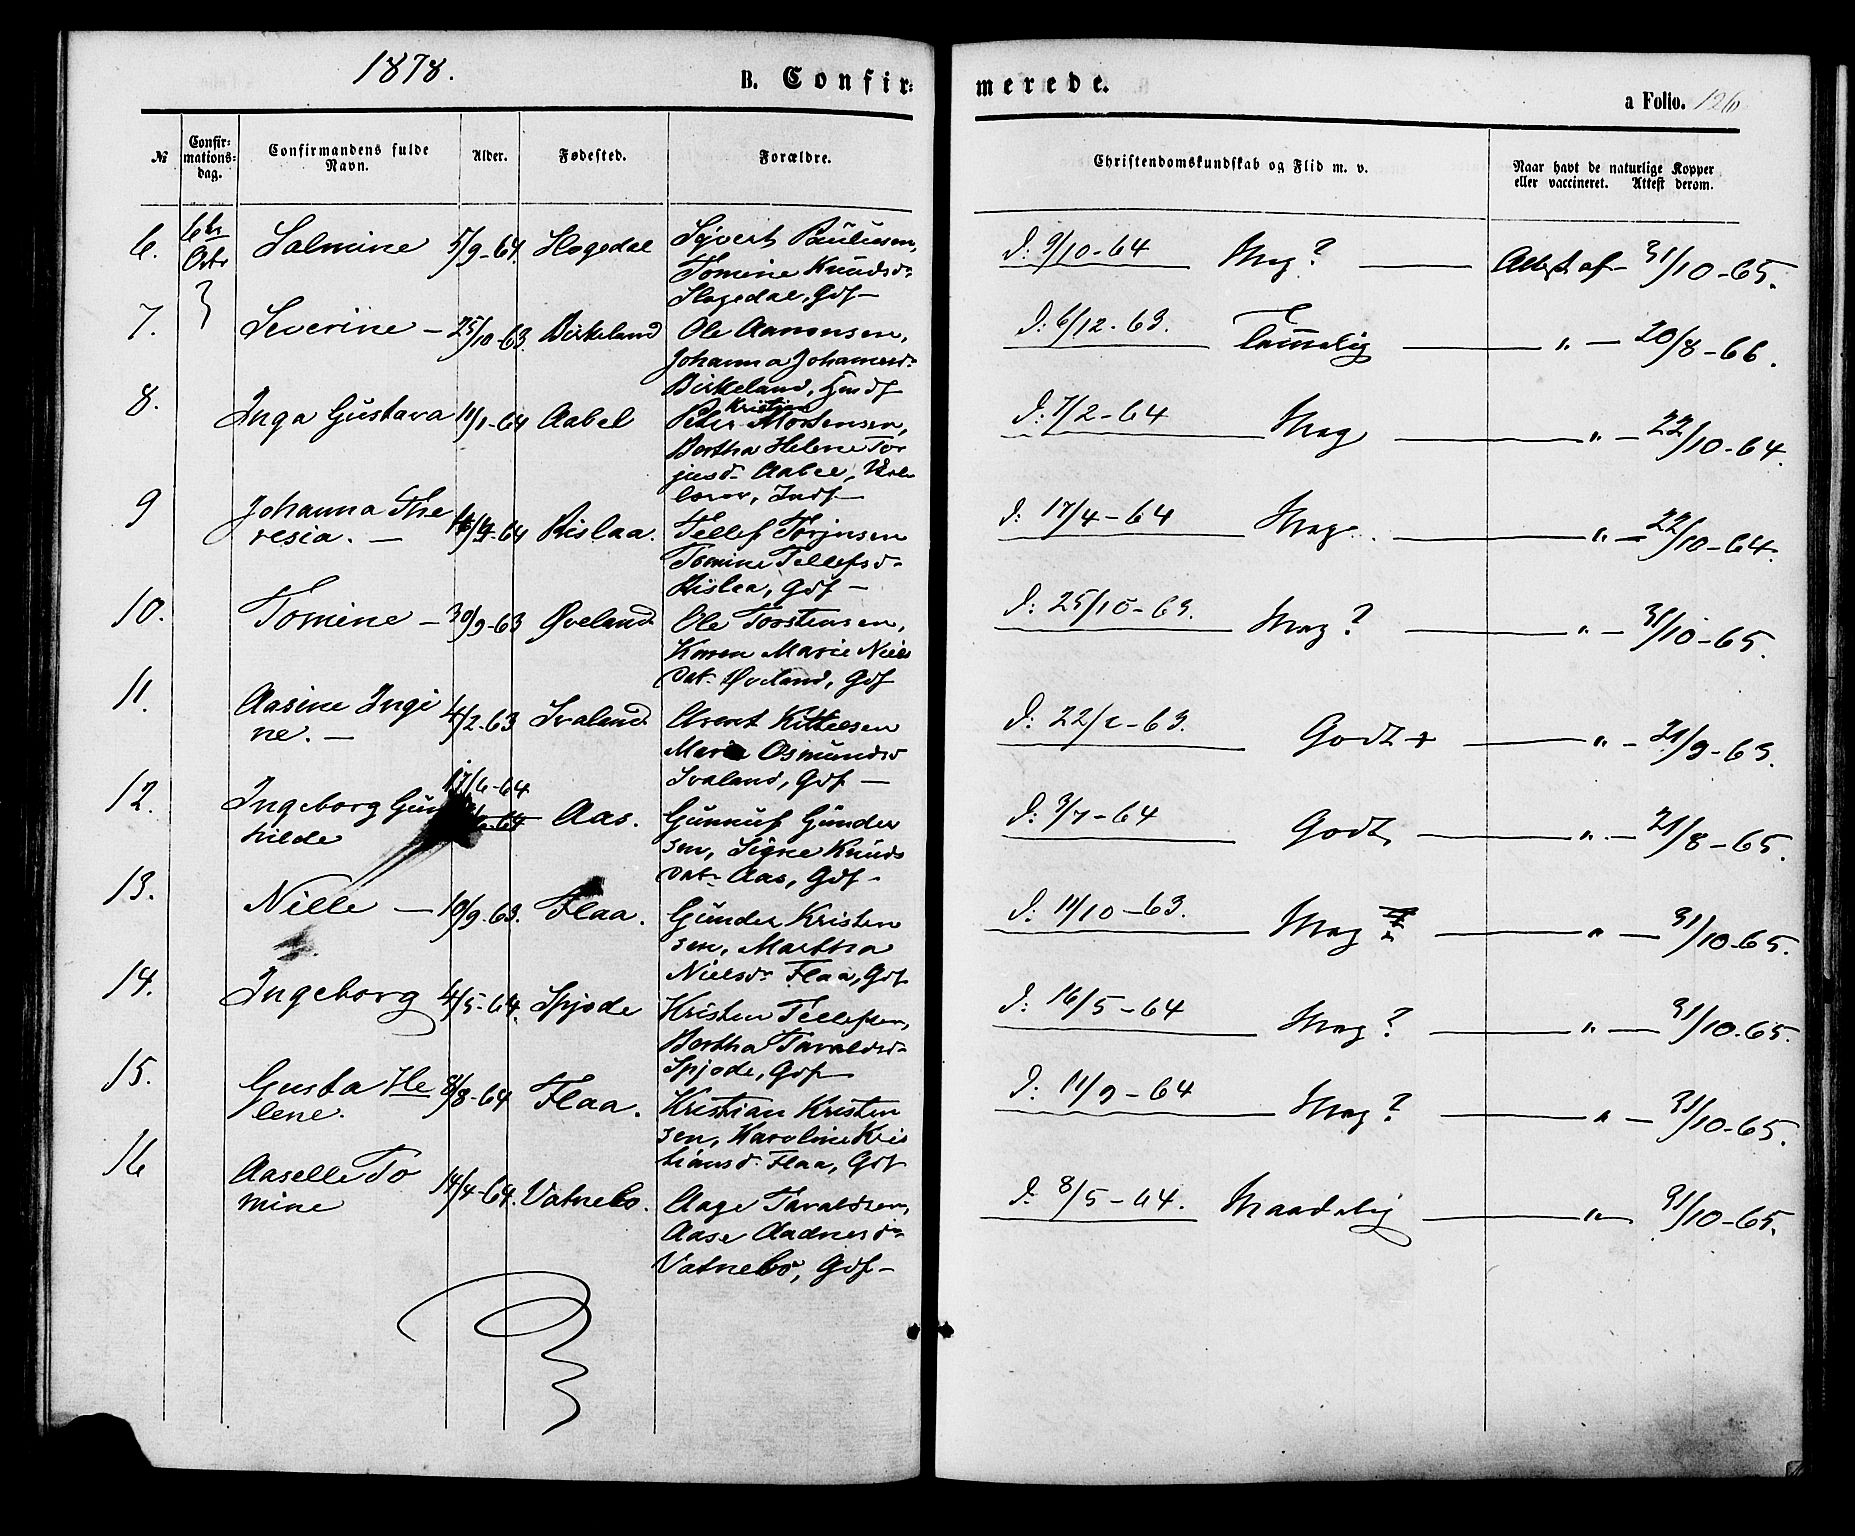 1878.
B. Confir-
merede.
a Folio. 126
№
Confir-
mations-
dag.
Confirmandens fulde
Navn.
Alder.
Fødested.
Forældre.
Christendomskundskab og Flid m. v.
Naar havt de naturlige Kopper
eller vaccineret. Attest derom.
6. 6te Salmine 5/9-64. Hogedal Syvert Paulusen,
Octr Tomine Knudsd-
Hogedal, Gdf-
D: 9/10-64 Mg ? Attest af 31/10-65.
7. Severine - 25/10-63. Birkeland Ole Aanonsen,
Johanna Johannesd-
Birkeland,
D: 6/12-63. Temmelig " - 20/8-66.
8. Inga Gustava 11/1-64 Aabel Peter Kristian Mortensen,
Bertha Helene Tor
jusd- Aabel,
lærer, Indf-
D: 7/2-64 Mg " - 22/10-64.
9 Johanna The
resia. - /4-64 Rislaa. Tellef Torjusen
Tomine Tellefsd-
Rislaa, Gdf-
D: 17/4-64 Mg " - 22/10-64.
10. Tomine - 30/9-63 Øveland Ole Torstensen,
Karen Marie Niels
dat. Øveland, Gdf
D: 25/10-63. Mg ? " - 31/10-65.
11. Aasine Ingi
ne. - 4/2-63 Ivaland Kittelsen
Maria Osmundsd
Ivaland, Gdf-
D: 22/2-63. Godt + " - 21/9-63.
12. Ingeborg Gun
hilde 17/6-64 Aas. Gunnuf Gunder
sen, Signe Knuds
dat- Aas, Gdf-
D: 3/7-64 Godt, " - 21/8-65.
13. Nille - 10/9-63. Flaa. Gunder Kristen
sen, Martha
Nielsd- Flaa, Gdf
D: 11/10-63. Mg " - 31/10-65.
14. Ingeborg 4/5-64. Spjode Kristen Tellefsen,
Bertha Taraldsd-
Spjode, Gdf-
D: 16/5-64 Mg ? " - 31/10-65.
15. Gusta He
lene. 8/8-64 Flaa. Kristian Kristen
sen, Karoline Kris
tiansd. Flaa, Gdf
D: 11/9-64 Mg ? " - 31/10-65.
16 Aaselle To
mine 14/4-64. Vatnebo. Aage Taraldsen,
Aase Aadnesd-
Vatnebo, Gdf-
D: 8/5-64. Maadelig " - 31/10-65.